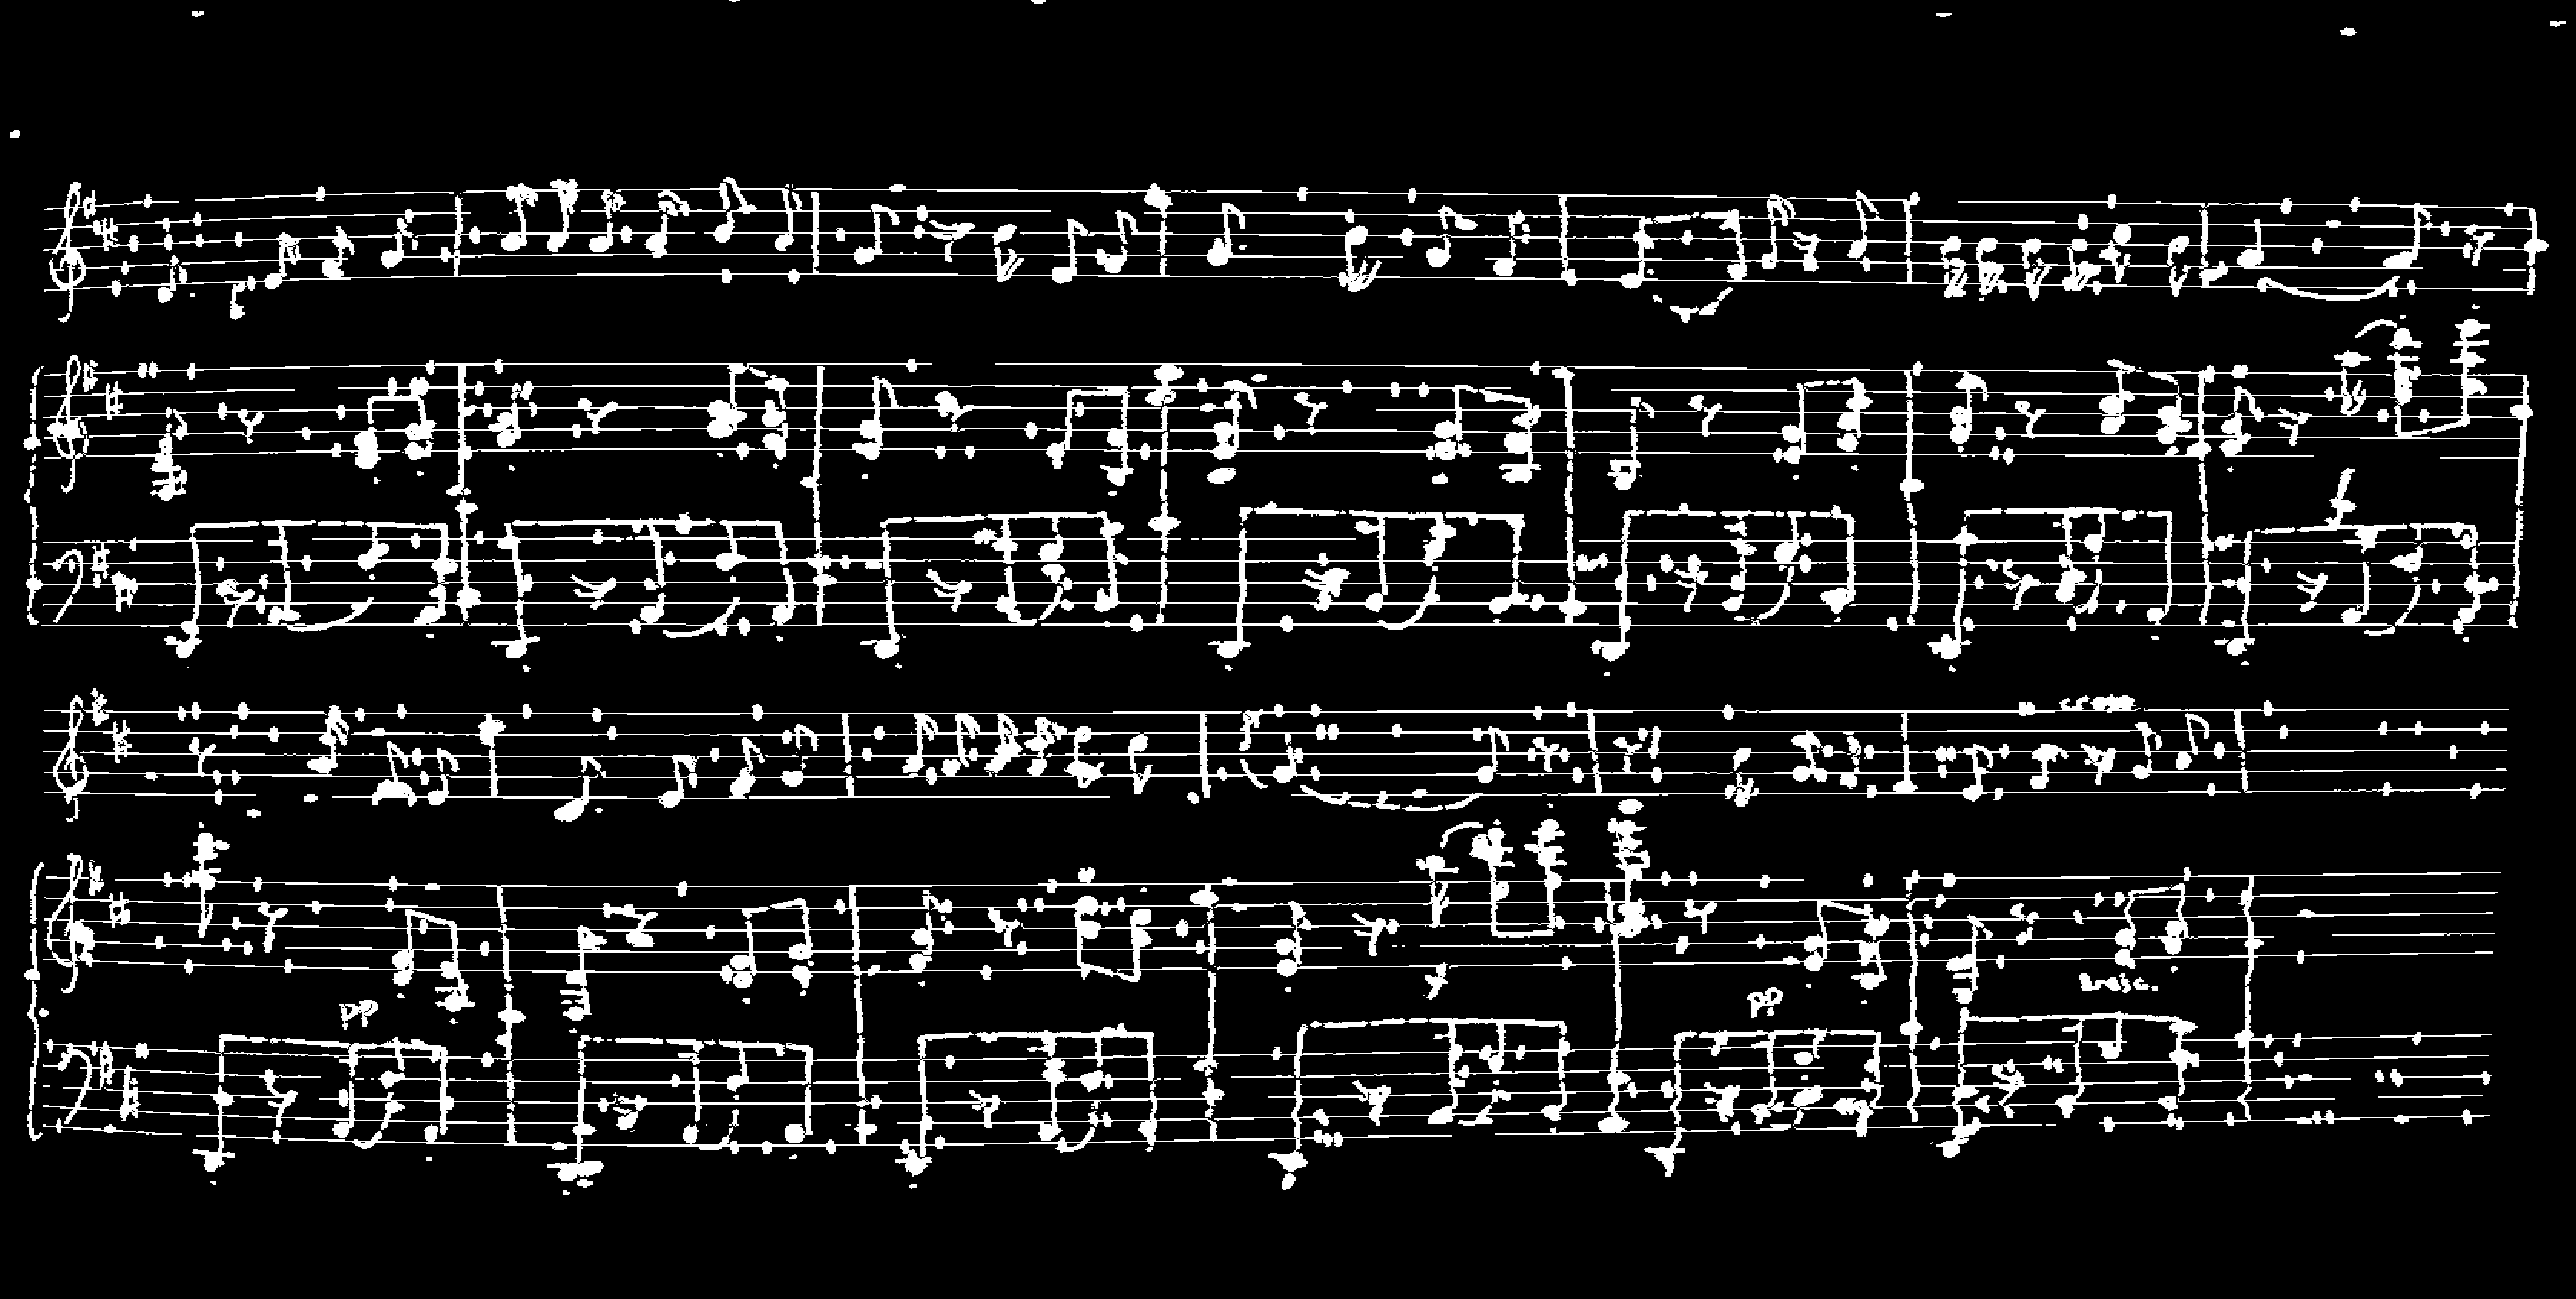 f
cresc.
pp
pp
cresc.